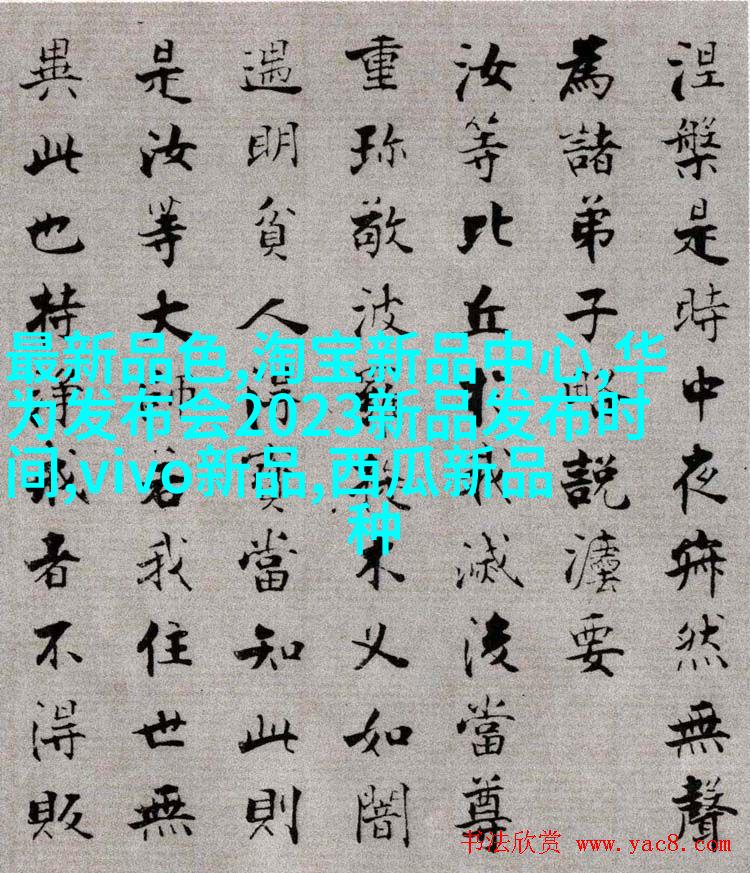 涅槃是時中夜寂然無聲
為諸弟子略說灋要
汝等比丘於我滅後當尊
重珍敬波羅提木叉如闇
遇明貧人得寶當知此則
是汝等大師若我住世無
異此也持淨戒者不得販
最新品色,淘宝新品中心,华
为发布会2023新品发布时
间,vivo新品,西瓜新品
种
书法欣赏 www.yac8.com